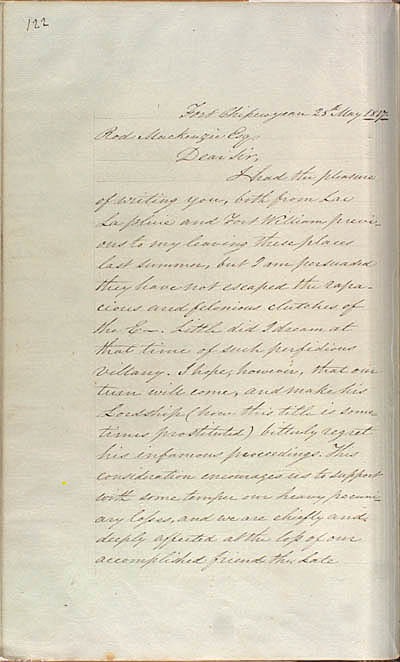 122
Fort Chipewyan 25th May 1817
Rod MacKenzie Esq.
Dear Sir,
I had the pleasure
of writing you, both from Lac
La pluie and Fort William previ-
ous to my leaving these places
last summer, but I am persuaded
they have not escaped the rapa-
cious and felonious clutches of
the E—. Little did I dream at
that time of such perfidious
villany. I hope, however, that our
turn will come, and make his
Lordship (how this title is some
times prostituted) bitterly regret
his infamous proceedings. This
consideration encourages us to support
with some temper our heavy pecuni-
ary losses, and we are chiefly and
deeply affected at the loss of our
accomplished friends the late